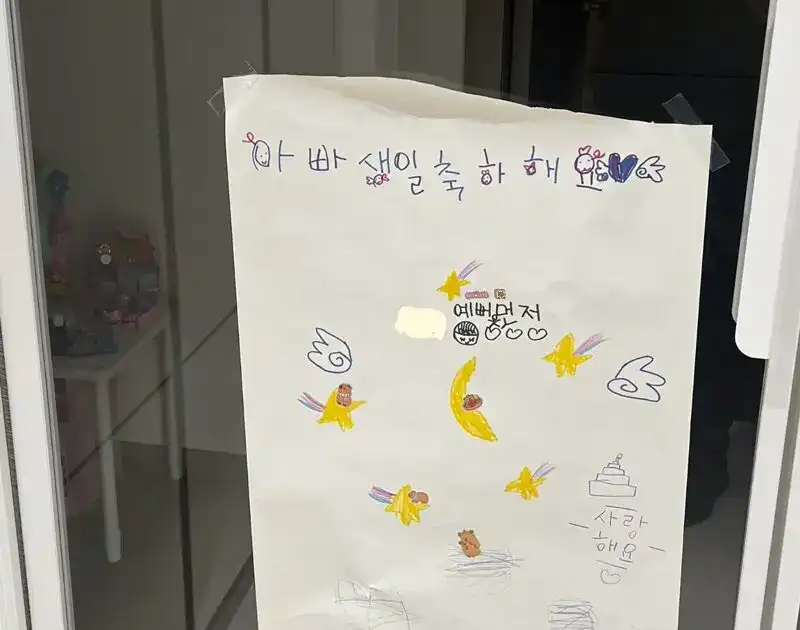 아빠 생일 축하해요
예뻐먼저
사랑
해요